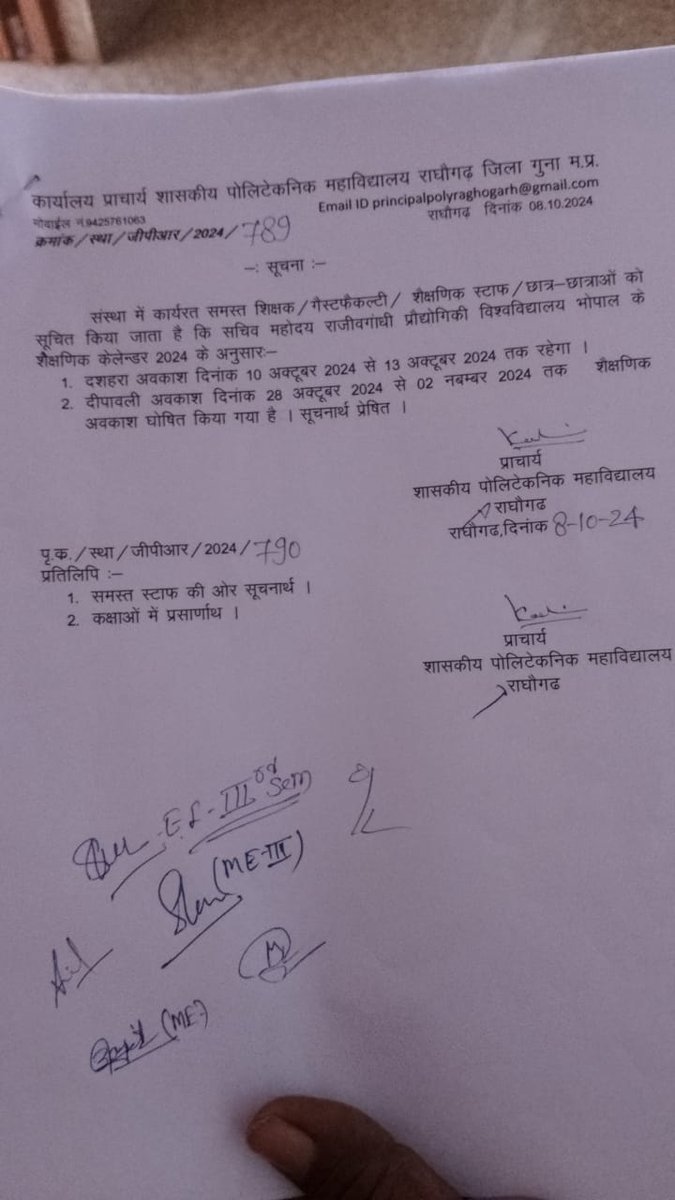 कार्यालय प्राचार्य शासकीय पोलिटेकनिक महाविद्यालय राघौगढ़ जिला गुना म.प्र.
मोबाईल नं.9425761063
Email ID principalpolyraghogarh@gmail.com
क्रमांक/स्था/जीपीआर/2024/789
राघौगढ़ दिनांक 08.10.2024
-: सूचना :-
संस्था में कार्यरत समस्त शिक्षक/गैस्टफैकल्टी/ शैक्षणिक स्टाफ/छात्र-छात्राओं को
सूचित किया जाता है कि सचिव महोदय राजीवगांधी प्रौद्योगिकी विश्वविद्यालय भोपाल के
शैक्षणिक केलेन्डर 2024 के अनुसारः-
1. दशहरा अवकाश दिनांक 10 अक्टूबर 2024 से 13 अक्टूबर 2024 तक रहेगा ।
2. दीपावली अवकाश दिनांक 28 अक्टूबर 2024 से 02 नबम्बर 2024 तक शैक्षणिक
अवकाश घोषित किया गया है । सूचनार्थ प्रेषित ।
प्राचार्य
शासकीय पोलिटेकनिक महाविद्यालय
राघौगढ
राघौगढ,दिनांक 8-10-24
पृ.क./स्था/जीपीआर/2024/790
प्रतिलिपि :-
1. समस्त स्टाफ की ओर सूचनार्थ ।
2. कक्षाओं में प्रसार्णाथ ।
प्राचार्य
शासकीय पोलिटेकनिक महाविद्यालय
राघौगढ
III rd Sem
(ME-III)
(ME-)